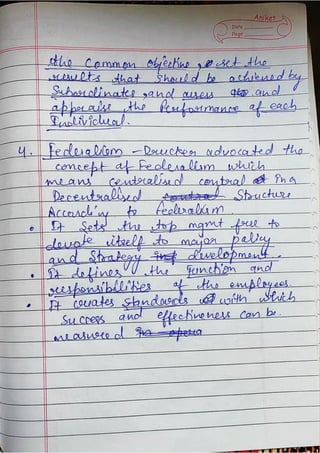 Aniket
Date
Page
the common objective, set the
results that should be achieved by
Subordinates, and assess and
appraise the Performance of each
Individual.
4. Federalism - Drucker advocated the
concept of Federalism which
means centralised control in a
Decentralised Structure
According to federalism.
• It Sets the top mgmt free to
devote itself to major policy
and Strategy development.
• It defines the function and
responsibilities of the employees.
• It creates standards with which
Success and effectiveness can be
measured